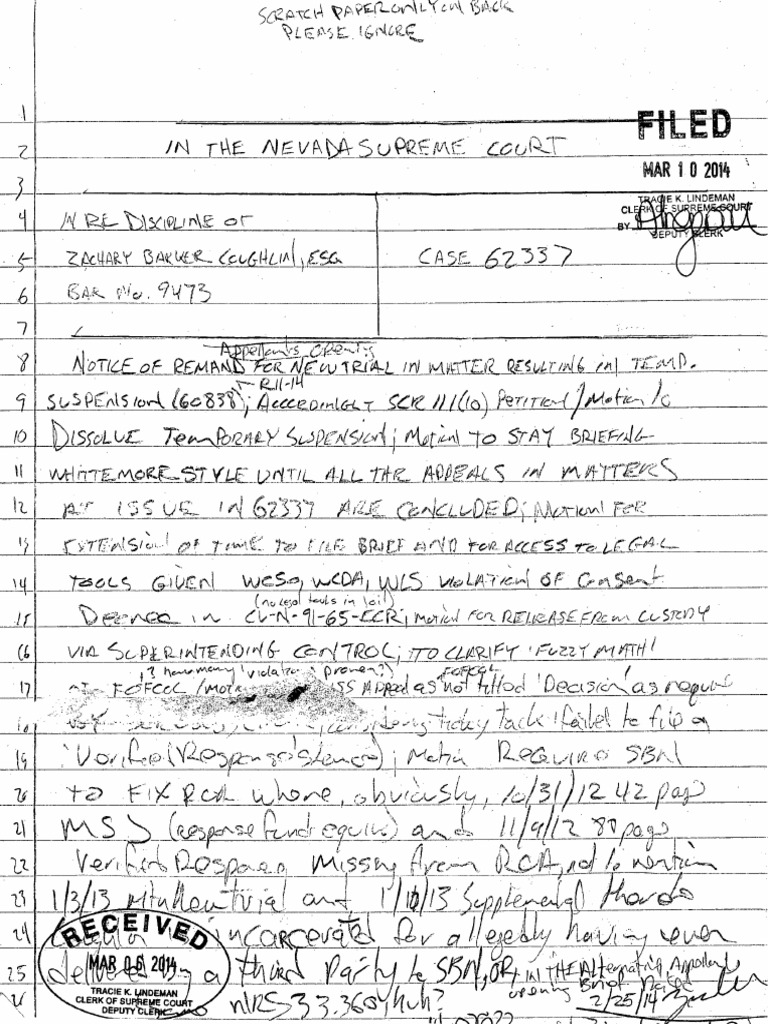 SCRATCH PAPER ONLY ON BACK
PLEASE IGNORE
1
FILED
2 IN THE NEVADA SUPREME COURT
MAR 10 2014
3
TRACIE K. LINDEMAN
CLERK OF SUPREME COURT
BY
DEPUTY CLERK
4 IN RE DISCIPLINE OF
5 ZACHARY BARKER COUGHLIN, ESQ CASE 62337
6 BAR No. 9473
7
Appellant's Opening
8 NOTICE OF REMAND FOR NEW TRIAL IN MATTER RESULTING IN TEMP.
R11-14
9 SUSPENSION (60838); ACCORDINGLY SCR 111(10) PETITION/Motion to
10 DISSOLVE TEMPORARY SUSPENSION; Motion TO STAY BRIEFING
11 WHITTEMORE-STYLE UNTIL ALL THE APPEALS IN MATTERS
12 AT ISSUE IN 62337 ARE CONCLUDED; Motion FOR
13 EXTENSION OF TIME TO FILE BRIEF AND FOR ACCESS TO LEGAL
14 TOOLS GIVEN WCSO, WCDA, WLS VIOLATION OF Consent
(no legal tools in jail)
15 Decree in CV-N-91-65-ECR; Motion FOR RELEASE FROM CUSTODY
16 VIA SUPERINTENDING CONTROL; TO CLARIFY 'FUZZY MATH'
? how many 'violations' proven?) FOFCOL
17 FOFCOL / as not titled 'Decision' as
18 failed to file a
19 'Verified Response' ; Motion Require SBN
20 to FIX ROA where, obviously, 10/31/12 42 page
21 MSJ (response and 11/9/12 80 page
22 Verified Response Missing from ROA, not to mention
23 1/3/13 and 1/10/13 Supplemental
24 incarcerated for allegedly having even
25 a third Party to SBN, OR IN THE Alternative Appellant
opening Brief
2/25/14
NRS 33.360, huh?
RECEIVED
MAR 06 2014
TRACIE K. LINDEMAN
CLERK OF SUPREME COURT
DEPUTY CLERK